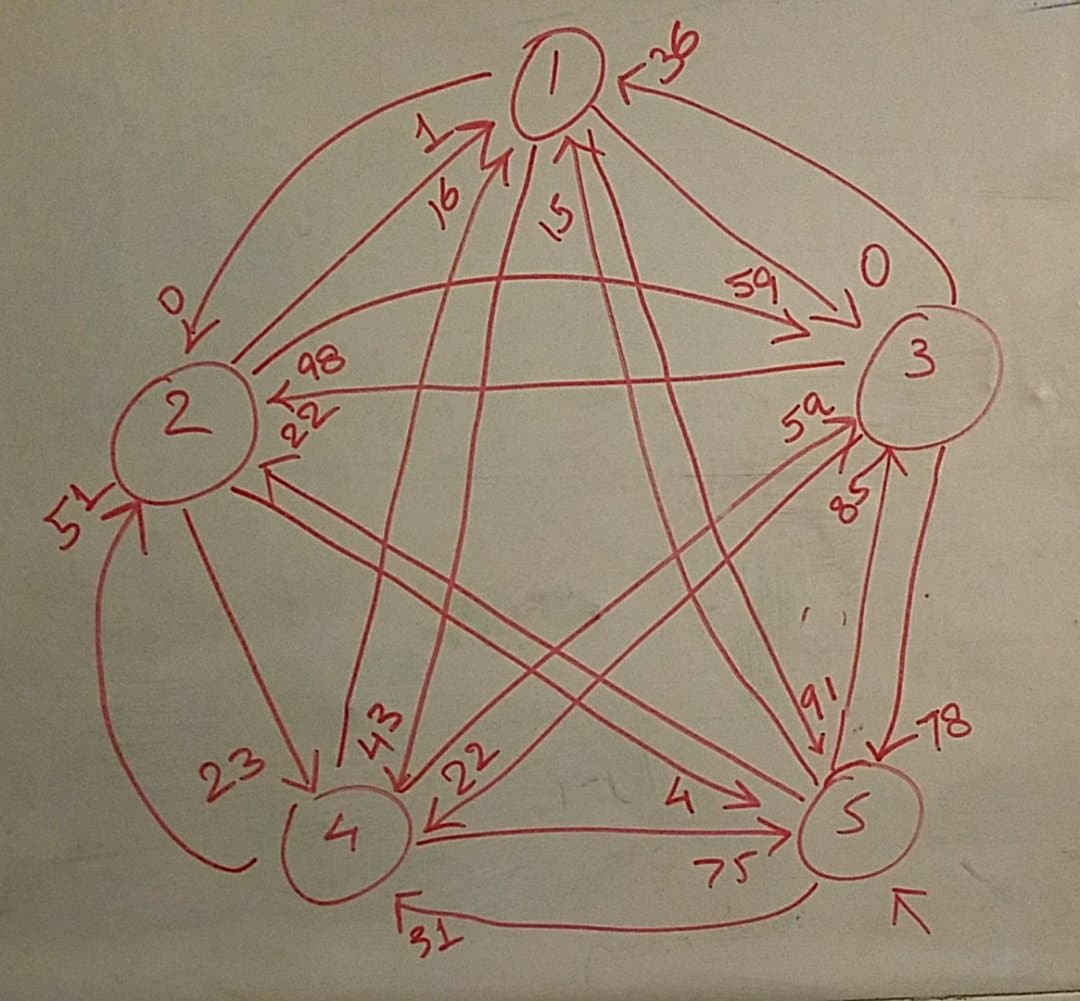 1
36
1
16
15
0
59
0
98
3
22
2
59
85
51
91
43
78
23
22
4
4
5
75
31